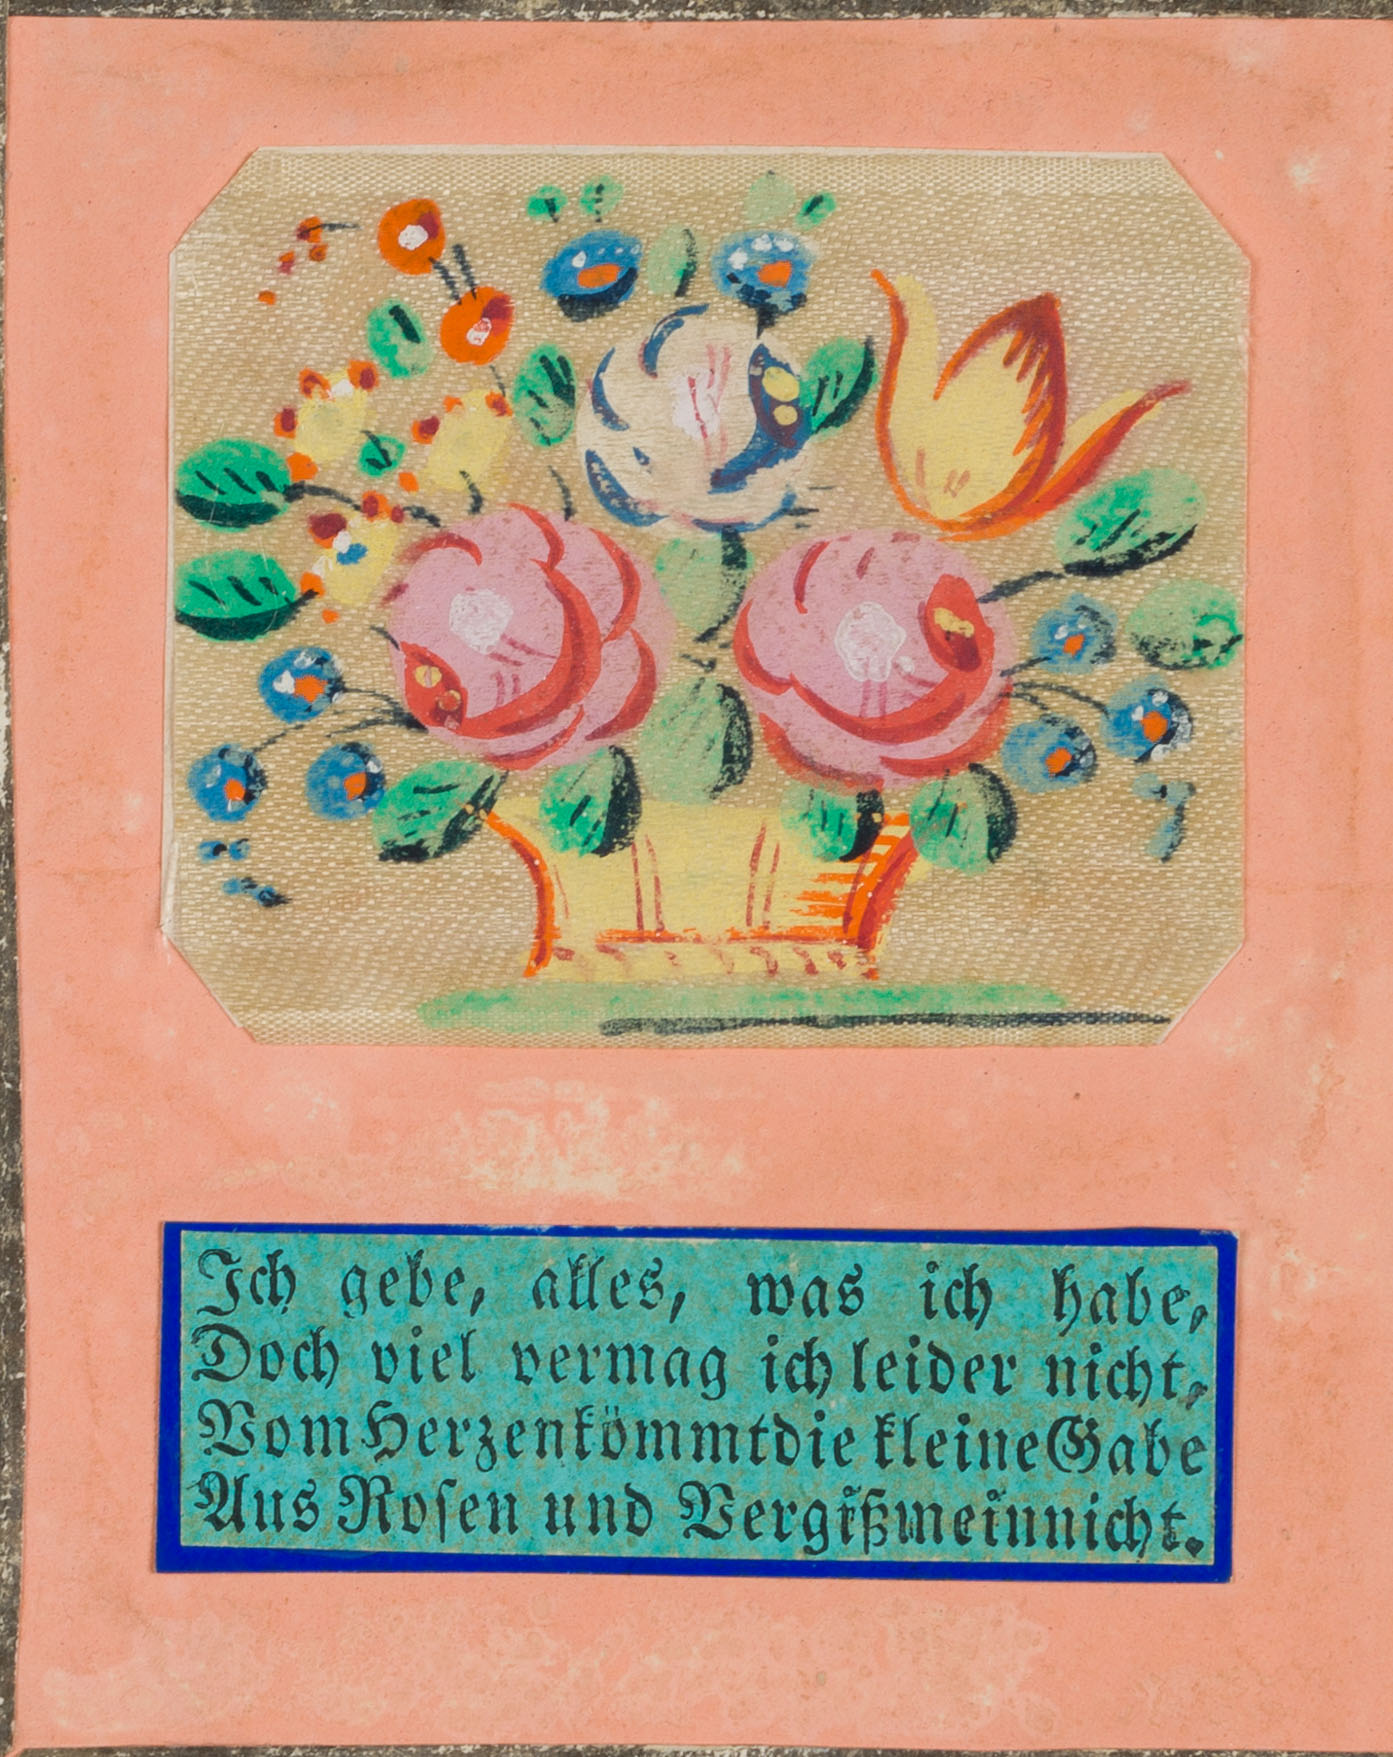 Ich gebe, alles, was ich habe,
Doch viel vermag ich leider nicht,
Vom Herzen kömmt die kleine Gabe
Aus Roſen und Vergißmeinnicht.